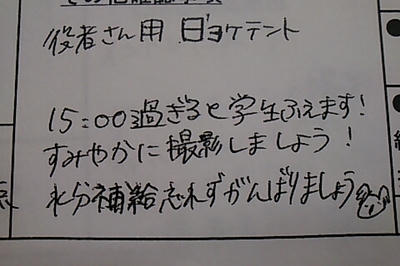 役者さん用 日ヨケテント
15:00過ぎると学生ふえます!
すみやかに撮影しましょう!
水分補給忘れずがんばりましょう